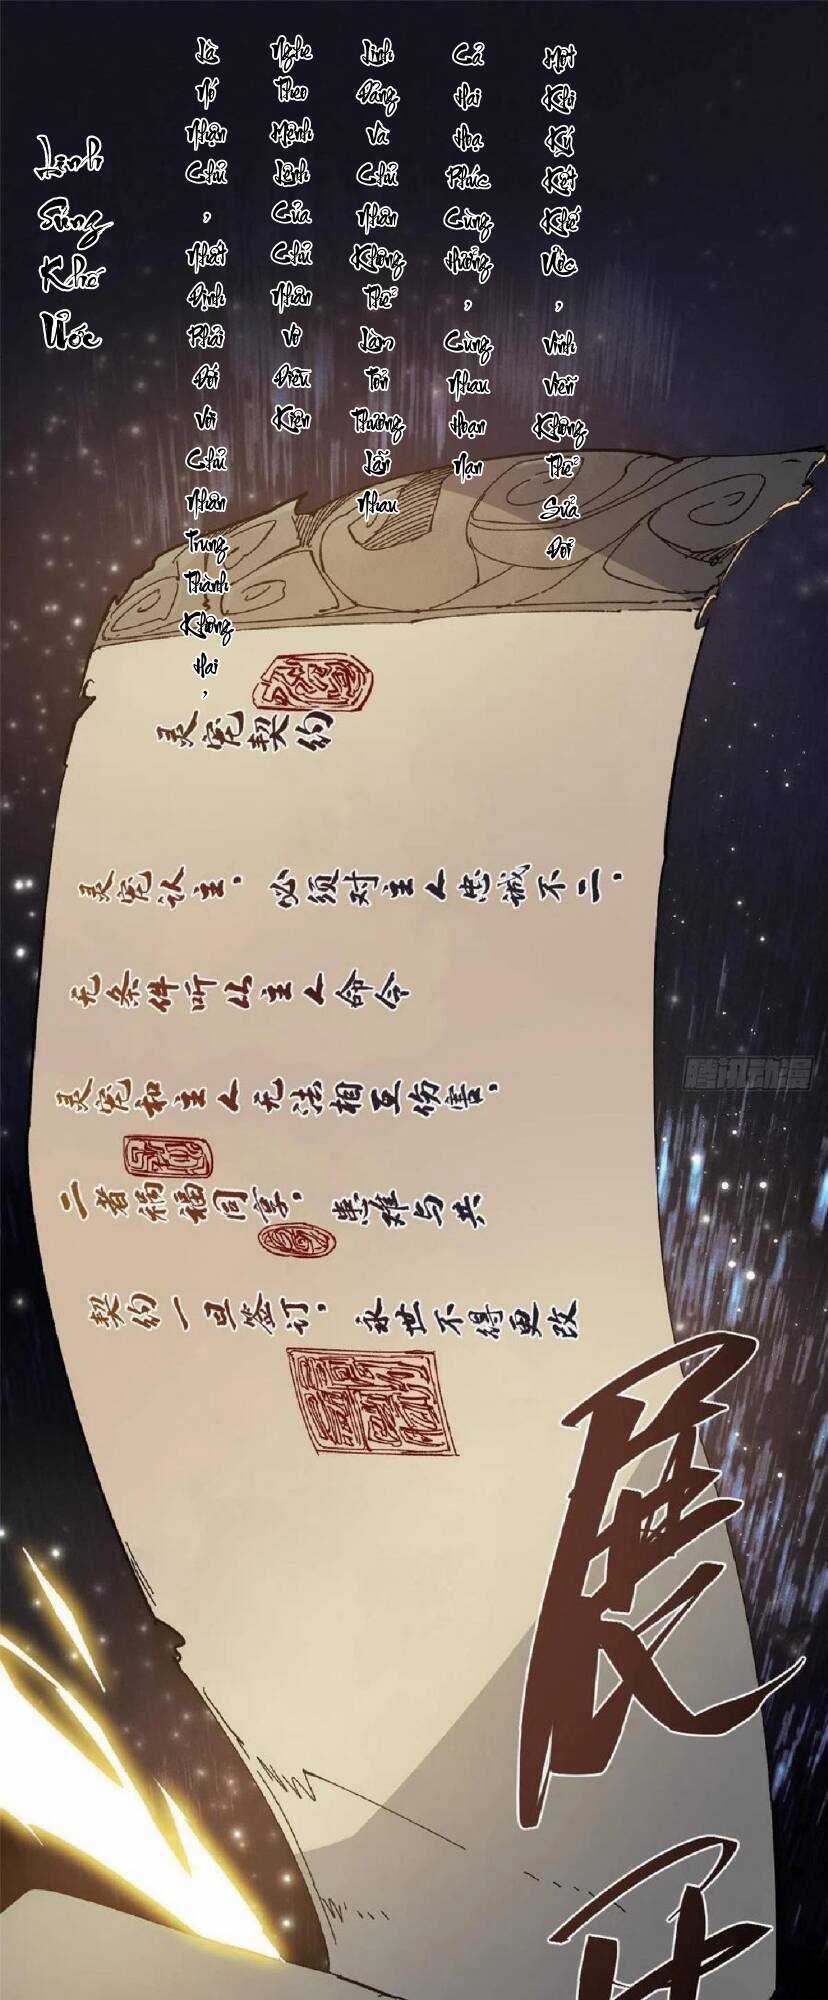 Linh Sủng Khế Ước
Là Nó Nhận Chủ, Nhất Định Phải Đối Với Chủ Nhân Trung Thành Không Hai,
Nghe Theo Mệnh Lệnh Của Chủ Nhân Vô Điều Kiện
Linh Đáng Và Chủ Nhân Không Thể Làm Tổn Thương Lẫn Nhau
Cả Hai Họa Phúc Cùng Hưởng, Cùng Nhau Hoạn Nạn
Một Khi Kí Kết Khế Ước, Vĩnh Viễn Không Thể Sửa Đổi
灵宠契约
灵宠认主，必须对主人忠诚不二，
无条件听从主人命令
灵宠和主人无法相互伤害，
二者祸福同享，患难与共
契约一旦签订，永世不得更改
腾讯动漫
展
开